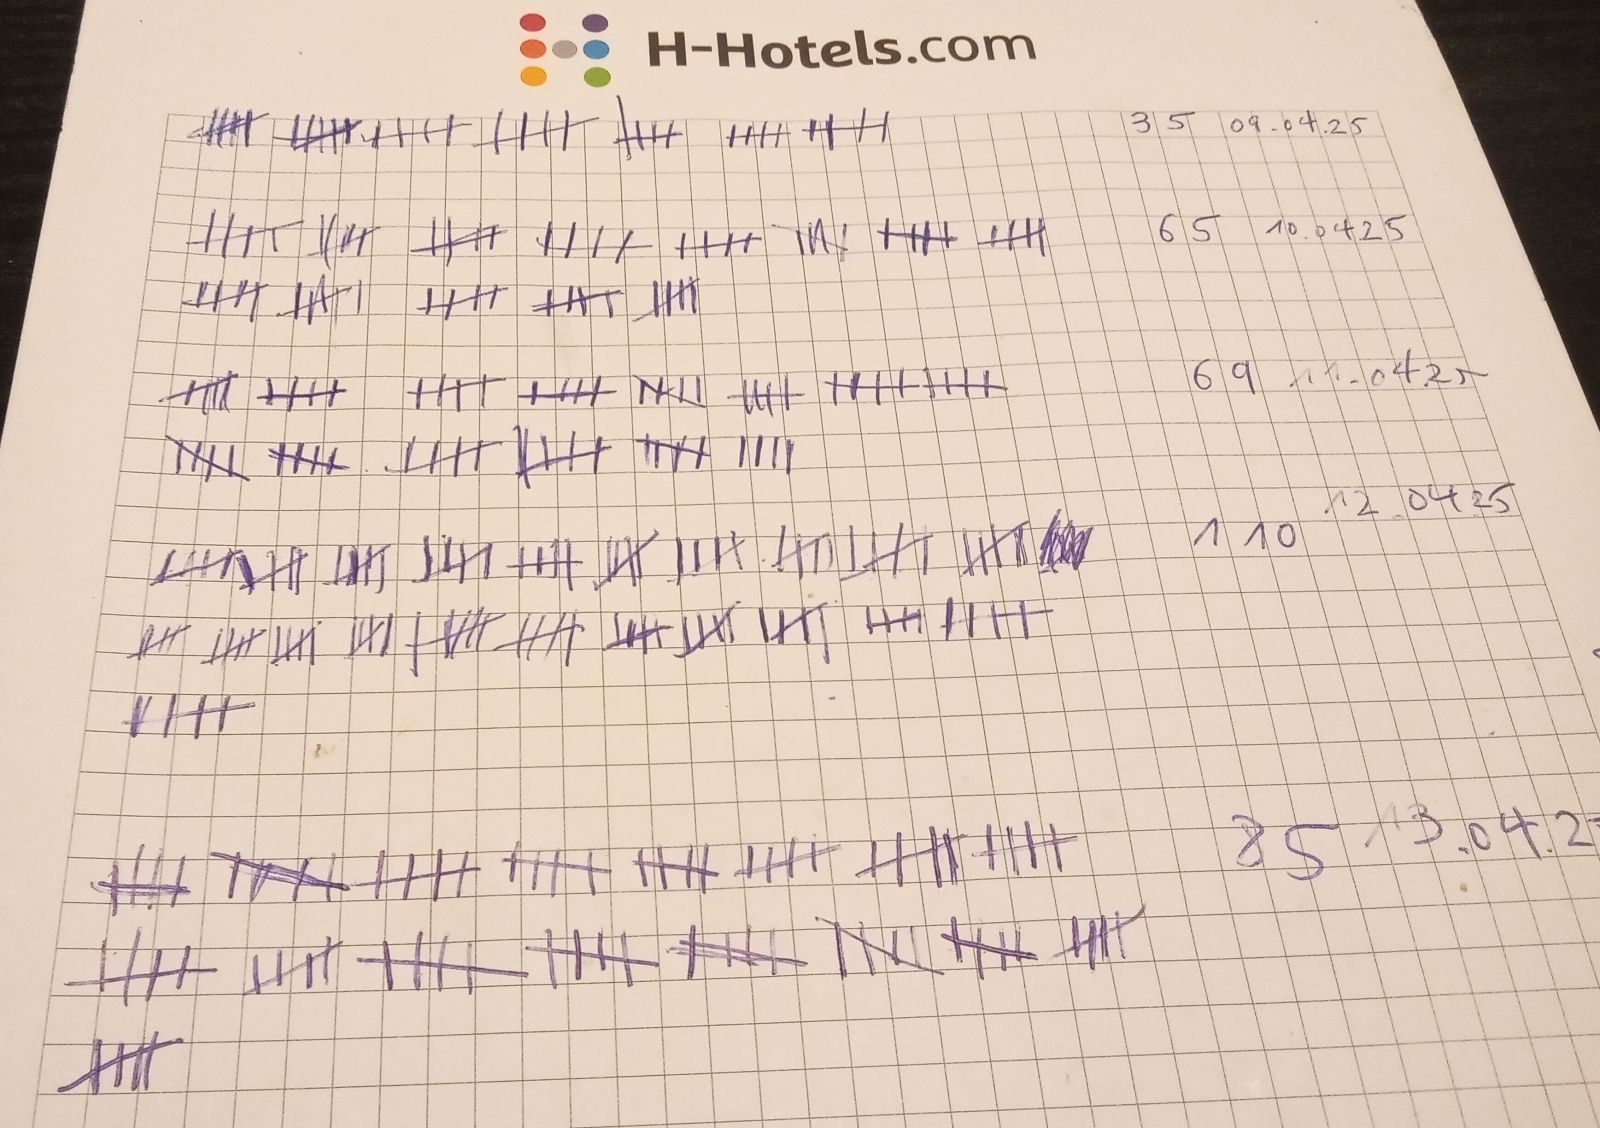 H-Hotels.com
35 09.04.25
65 10.04.25
69 11.04.25
12.04.25
110
85 13.04.2